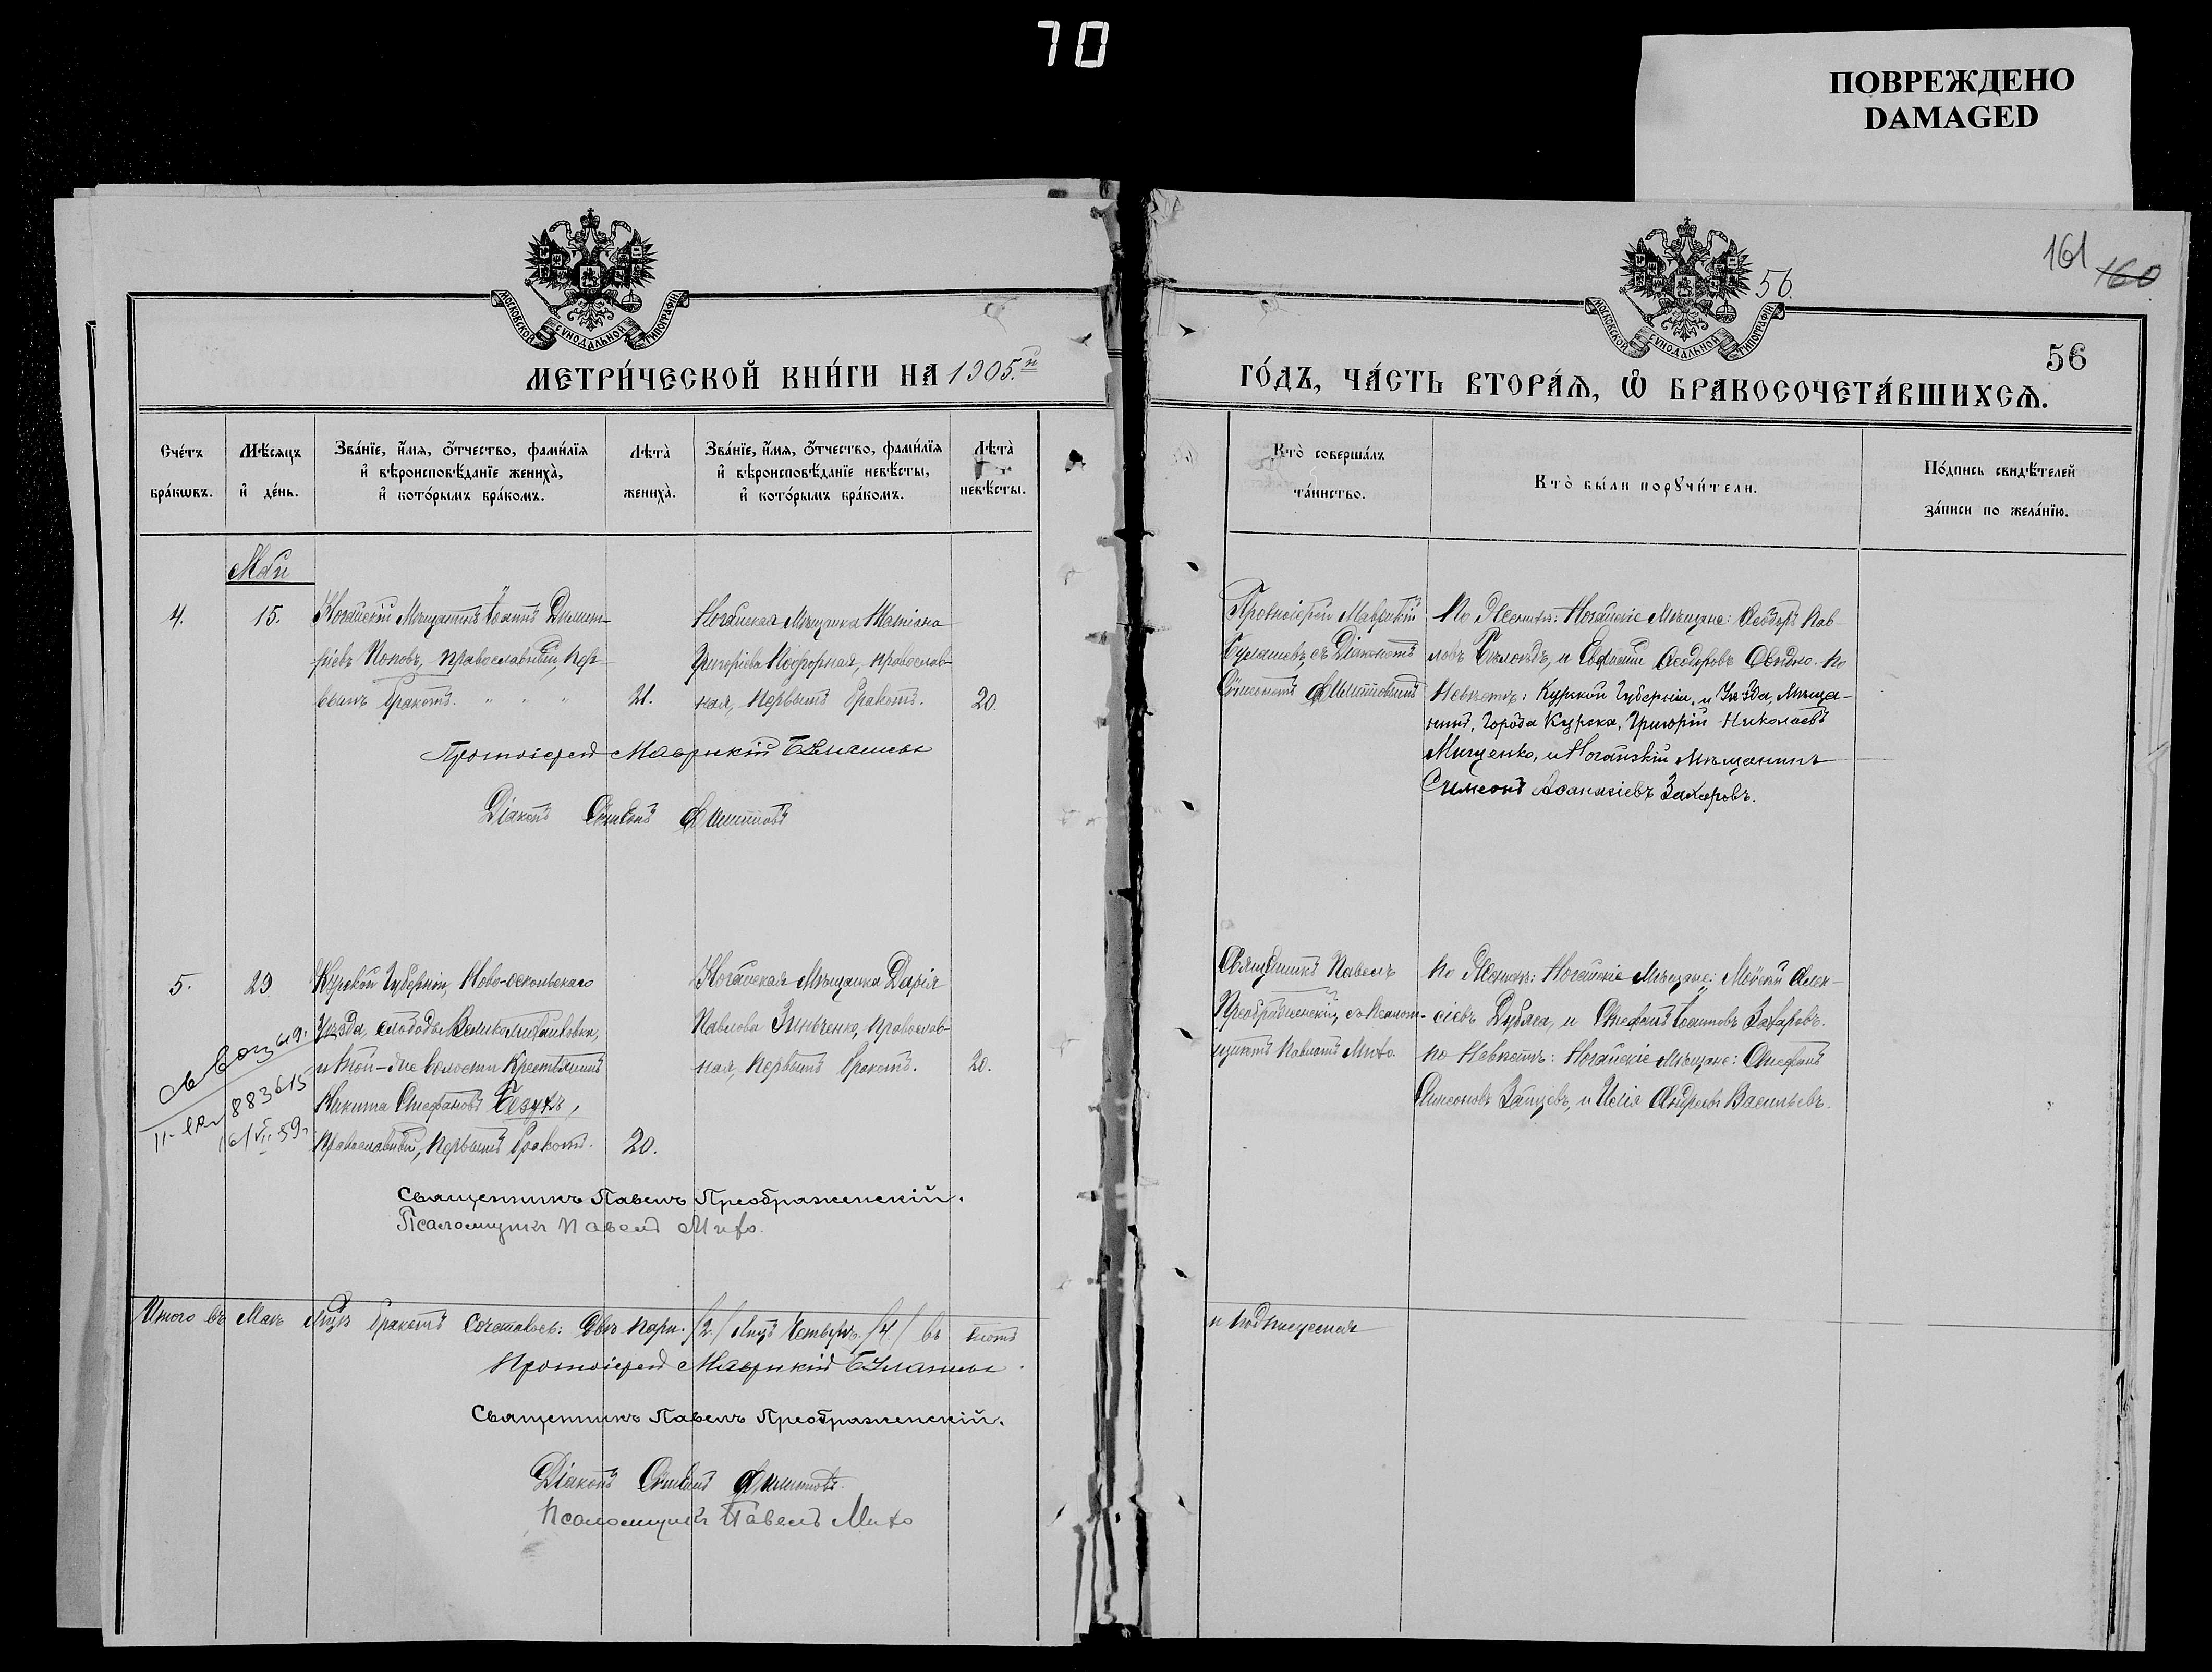 70
ПОВРЕЖДЕНО
DAMAGED
МОСКОВСКОЙ СУНОДАЛЬНОЙ ТИПОГРАФІИ
МОСКОВСКОЙ СУНОДАЛЬНОЙ ТИПОГРАФІИ
56.
161
160
56
МЕТРИ́ЧЕСКОЙ КНИ́ГИ НА 1905.й
ГО́ДЪ, ЧА́СТЬ ВТОРА́Ѧ, Ѽ БРАКОСОЧЕТА́ВШИХСѦ.
Сче́тъ бра́кѡвъ.
Мѣ́сяцъ и҆ де́нь.
Зва́нїе, и҆́мя, ѻ҆́тчество, фами́лїя
и҆ вѣроисповѣ́данїе жениха̀,
и҆ кото́рымъ бра́комъ.
Лѣта̀ жениха̀.
Зва́нїе, и҆́мя, ѻ҆́тчество, фами́лїя
и҆ вѣроисповѣ́данїе невѣ́сты,
и҆ кото́рымъ бра́комъ.
Лѣта̀ невѣ́сты.
Кто̀ соверша́лъ та́инство.
Кто̀ бы́ли порꙋчи́тели.
По́дпись свидѣ́телей за́писи по жела́нїю.
Май
4.
15.
Ногайскій Мѣщанинъ Іоаннъ Димит-
ріевъ Поповъ, православный, пер-
вымъ бракомъ. " " "
21.
Ногайская Мѣщанка Татіана
Григоріева православ-
ная, первымъ бракомъ.
20.
Протоіерей Маврикій
Булашевъ, съ Діакономъ
По Женихѣ: Ногайскіе Мѣщане: Ѳеодоръ Пав-
ловъ и Евфимій Ѳеодоровъ По
Невѣстѣ: Курской Губерніи, и Уѣзда, Мѣща-
нинъ, Города Курска, Григорій Николаевъ
Мищенко, и Ногайскій Мѣщанинъ
Симеонъ Аѳанасіевъ Захаровъ.
Протоіерей Маврикій Булашевъ
Діаконъ
5.
29
Курской Губерніи, Ново-оскольскаго
Уѣзда, слободы Велико-михайловки,
и той-же Волости Крестьянинъ
Никита Стефановъ
православный, первымъ бракомъ.
20.
Ногайская Мѣщанка Дарія
Павлова Зинченко, православ-
ная, первымъ бракомъ.
20.
Священникъ Павелъ
Преображенскій, съ Псалом-
щикомъ Павломъ Михо.
По Женихѣ: Ногайскіе Мѣщане: Моисей Алек-
сіевъ Дубяга, и Стефанъ Іоанновъ Захаровъ.
По Невѣстѣ: Ногайскіе Мѣщане: Стефанъ
Симеоновъ Зайцевъ, и Илія Андреевъ Васильевъ.
883615
Священникъ Павелъ Преображенскій.
Псаломщикъ Павелъ Михо.
Итого въ Маѣ м-цѣ бракомъ Сочеталось: Двѣ пары. /2./ Лицъ Четверо. /4./ въ чемъ
и подписуемся
Протоіерей Маврикій Булашевъ
Священникъ Павелъ Преображенскій.
Діаконъ
Псаломщикъ Павелъ Михо